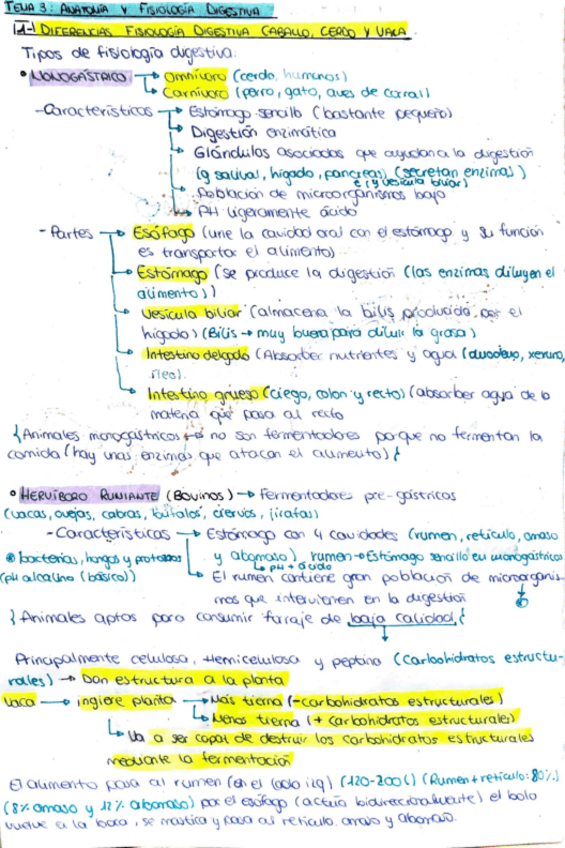 TEMA 3: ANATOMÍA Y FISIOLOGÍA DIGESTIVA
1- DIFERENCIAS FISIOLOGÍA DIGESTIVA CABALLO, CERDO Y VACA.
Tipos de fisiología digestiva:
• MONOGÁSTRICO → Omnívoro (cerdo, humanos)
↳ Carnívoro (perro, gato, aves de corral)
- Características → Estómago sencillo (bastante pequeño)
↳ Digestión enzimática
↳ Glándulas asociadas que ayudan a la digestión
(g salival, hígado, pancreas) (secretan enzimas)
e (y vesícula biliar)
↳ Población de microorganismos bajo
↳ PH ligeramente ácido
- Partes → Esófago (une la cavidad oral con el estómago y su función
es transportar el alimento)
↳ Estómago (se produce la digestión (las enzimas diluyen el
alimento))
↳ Vesícula biliar (almacena la bilis producida por el
hígado) (Bilis → muy buena para diluir la grasa)
↳ Intestino delgado (Absorber nutrientes y agua (duodeno, yeyuno,
íleo).
↳ Intestino grueso (ciego, colon y recto) (absorber agua de la
materia que pasa al recto
{Animales monogástricos → no son fermentadores porque no fermentan la
comida (hay unas enzimas que atacan el alimento)}
• HERVÍBORO RUMIANTE (Bovinos) → Fermentadores pre-gástricos
(vacas, ovejas, cabras, búfalos, ciervos, jirafas)
- Características → Estómago con 4 cavidades (rumen, retículo, omaso
⊛ bacterias, hongos y protozoos y abomaso), rumen → Estómago sencillo en monogástricos
(pH alcalino (básico)) ↳ pH + ácido
↳ El rumen contiene gran población de microorganis-
mos que intervienen en la digestión
{Animales aptos para consumir forraje de baja calidad}
Principalmente celulosa, Hemicelulosa y peptina (Carbohidratos estructu-
rales) → Dan estructura a la planta
Vaca → ingiere planta → Más tierna (- carbohidratos estructurales)
↳ Menos tierna (+ carbohidratos estructurales)
↳ Va a ser capaz de destruir los carbohidratos estructurales
mediante la fermentación
El alimento pasa al rumen (en el lado izq) (120-200L) (Rumen + retículo: 80%)
(8% omaso y 12% abomaso) por el esófago (actúa bidireccionalmente) el bolo
vuelve a la boca, se mastica y pasa al retículo, omaso y abomaso.